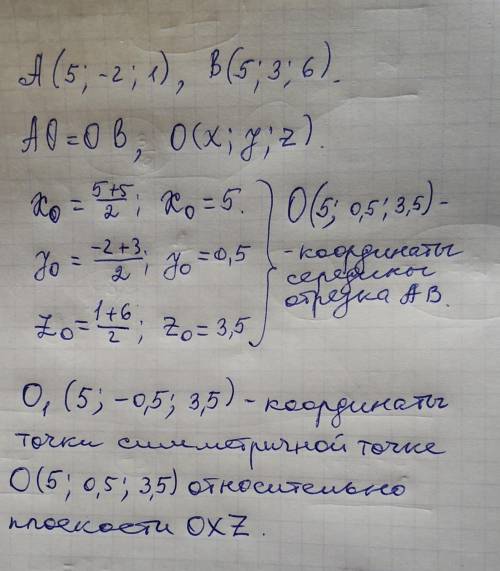 A(5; -2; 1), B(5; 3; 6).
AO = OB, O(x; y; z).
x₀ = (5+5)/2; x₀ = 5.
y₀ = (-2+3)/2; y₀ = 0,5
z₀ = (1+6)/2; z₀ = 3,5
O(5; 0,5; 3,5) -
- координаты
середины
отрезка AB.
O₁ (5; -0,5; 3,5) - координаты
точки симметричной точке
O(5; 0,5; 3,5) относительно
плоскости OXZ.